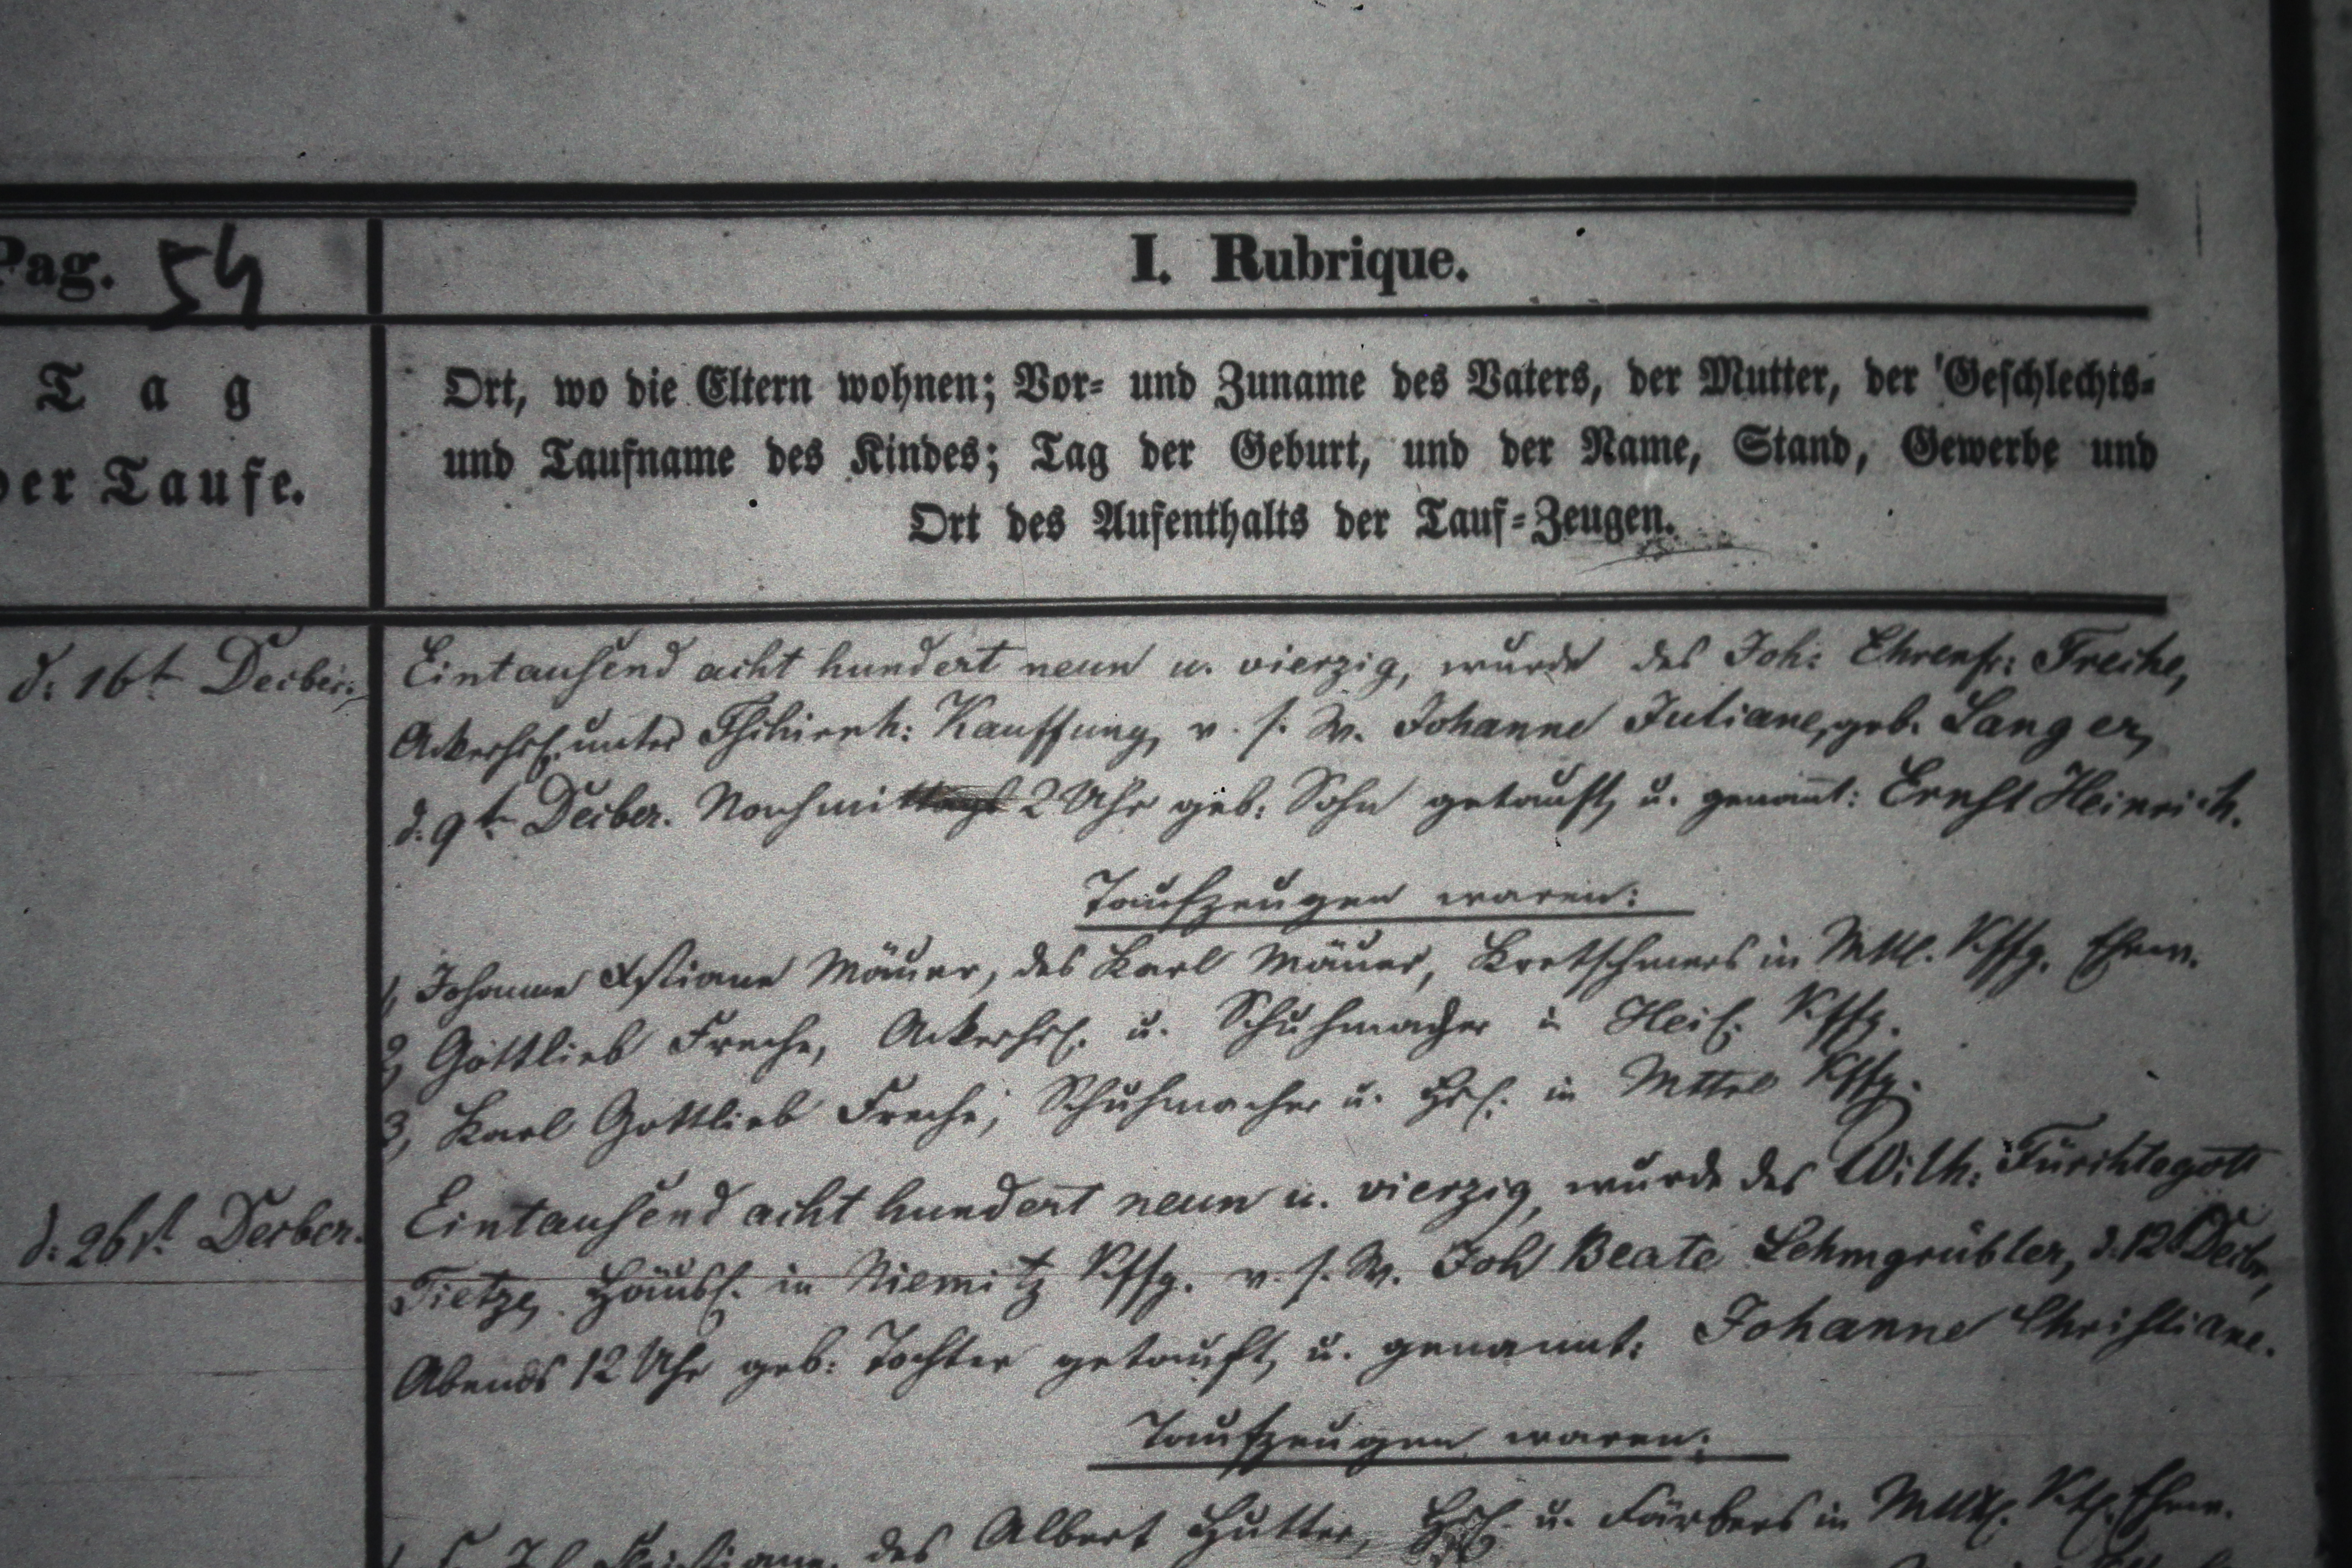 Pag. 54
I. Rubrique.
Tag
der Taufe.
Ort, wo die Eltern wohnen; Vor- und Zuname des Vaters, der Mutter, der Geschlechts-
und Taufname des Kindes; Tag der Geburt, und der Name, Stand, Gewerbe und
Ort des Aufenthalts der Tauf-Zeugen.
d: 16t Decbr:
Eintausend acht hundert neun u. vierzig, wurde des Joh: Ehrenfr: Freche,
Ackerhsl. unter Kauffung, v. s. W. Johanne Juliane, geb. Langer,
d. 9t Decber. Nachmittags 2 Uhr geb: Sohn getauft, u. genannt: Ernst Heinrich.
Taufzeugen waren:
1, Johanne Xstiane Mäuer, des Karl Mäuer, Kretschmers in Mttl. Kffg. Ehew.
2, Gottlieb Freche, Ackerhsl. u. Schuhmacher in Kffg.
3, Karl Gottlieb Freche, Schuhmacher u. Hsl. in Mttel Kffg.
d: 26st Decber.
Eintausend acht hundert neun u. vierzig, wurde des Wilh: Fürchtegott
Tietze, Häusl. in Niemitz Kffg. v. s. W. Joh Beate Lehmgrübler, d. 12t Decbr,
Abends 12 Uhr geb: Tochter getauft, u. genannt: Johanne Christiane.
Taufzeugen waren:
des Albert Hutter, Hsl. u. Färbers in Mttl. Ehew.